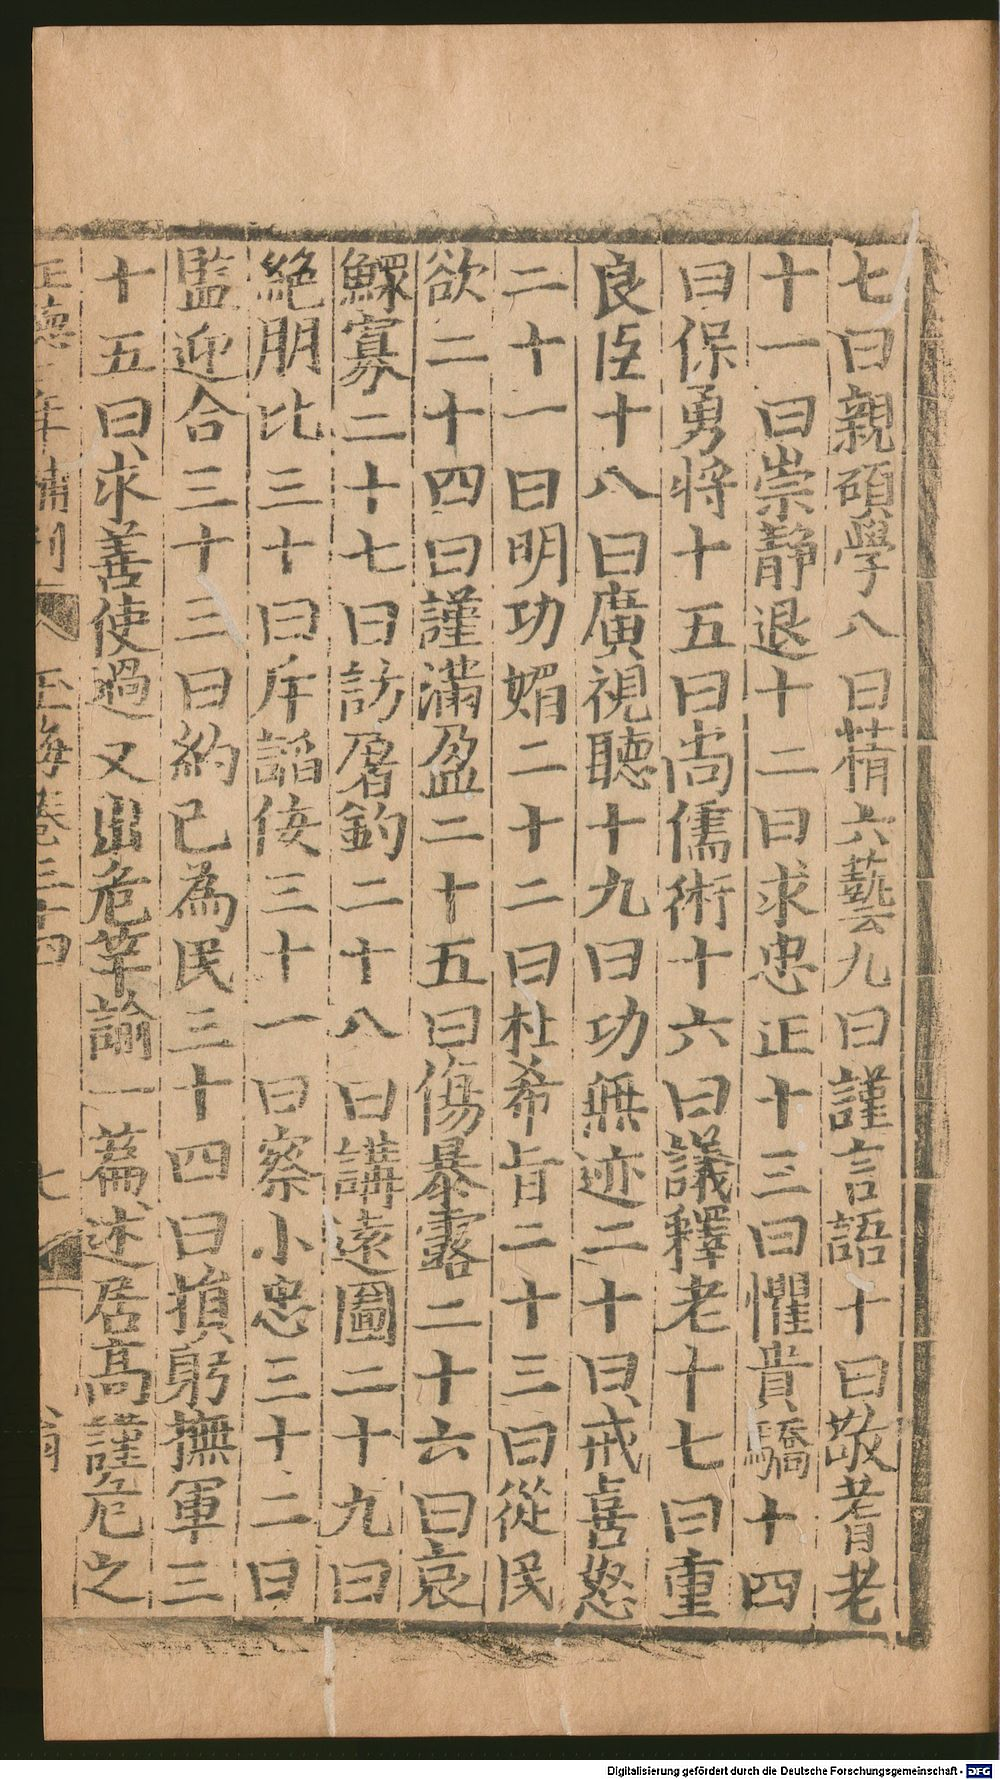 七曰親碩學八曰精六藝九曰謹言語十曰敬耆老
十一曰崇靜退十二曰求忠正十三曰懼貴驕十四
曰保勇將十五曰尚儒術十六曰議釋老十七曰重
良臣十八曰廣視聽十九曰功無迹二十曰戒喜怒
二十一曰明功媢二十二曰杜希旨二十三曰從民
欲二十四曰謹滿盈二十五曰傷暴露二十六曰哀
鰥寡二十七曰訪屠釣二十八曰講遠圖二十九曰
絕朋比三十曰斥謟佞三十一曰察小忠三十二曰
監迎合三十三曰約己為民三十四曰損躬撫軍三
十五曰求善使過又出危竿諭一篇述居高謹危之
正德二年補刊 玉海卷三十四 七
Digitalisierung gefördert durch die Deutsche Forschungsgemeinschaft - DFG